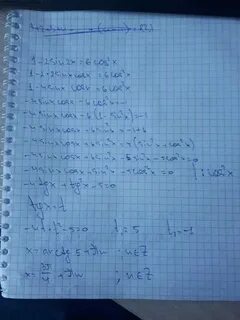 1-2sin2x=6cos²x
1-2·2sinx cosx=6cos²x
1-4sinx cosx=6cos²x
-4sinx cosx-6cos²x=-1
-4sinx cosx-6(1-sin²x)=-1
-4sinx cosx+6sin²x=-1+6
-4sinx cosx+6sin²x=5(sin²x+cos²x)
-4sinx cosx+6sin²x-5sin²x-5cos²x=0
-4sinx cosx+sin²x-5cos²x=0 | :cos²x
-4tgx+tg²x-5=0
tgx=t
-4t+t²-5=0 t₁=5 t₂=-1
x=arctg5+πn ; n∈Z
x=3π/4+πn ; n∈Z